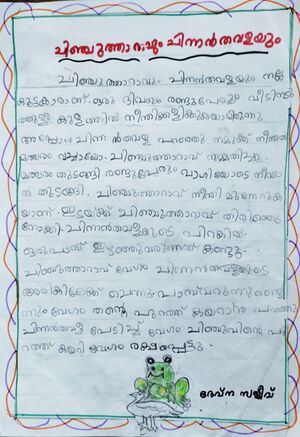 ചിഞ്ചുത്താറാവും ചിന്നൻതവളയും
ചിഞ്ചുത്താറാവും ചിന്നൻതവളയും നല്ല
കൂട്ടുകാരാണ് ഒരു ദിവസം രണ്ടുപേരും വീടിനടു
ത്തുള്ള കുളത്തിൽ നീന്തിക്കളിക്കുകയായിരുന്നു
അപ്പോൾ ചിന്നൻതവള പറഞ്ഞു നമുക്ക് നീന്തൽ
മത്സരം വച്ചാലോ. ചിഞ്ചുത്താറാവ് സമ്മതിച്ചു.
മത്സരം തുടങ്ങി രണ്ടുപേരും വാശിയോടെ നീന്താ
ൻ തുടങ്ങി. ചിഞ്ചുത്താറാവ് നീന്തി മുന്നേറുക
യാണ് ഇടയ്ക്ക് ചിഞ്ചുത്താറാവ് തിരിഞ്ഞു
നോക്കി. ചിന്നൻതവളക്കുടെ പിറകിയ
ഒരുപാമ്പ് ഇഴഞ്ഞുവരുന്നത് കണ്ടു.
ചിഞ്ചുത്താറാവ് വേഗം ചിന്നൻതവളയുടെ
അരികിലേക്ക് ചെന്നു പാമ്പ് വരുന്നുണ്ടെ
ന്നും വേഗം തന്റെ പുറത്ത് കയറാൻ പറഞ്ഞു
ചിന്നൻതവള പേടിച്ച് വേഗം ചിഞ്ചുവിന്റെ പു
റത്ത് കയറി വേഗം രക്ഷപ്പെട്ടു.
ദേവ്ന സജീവ്